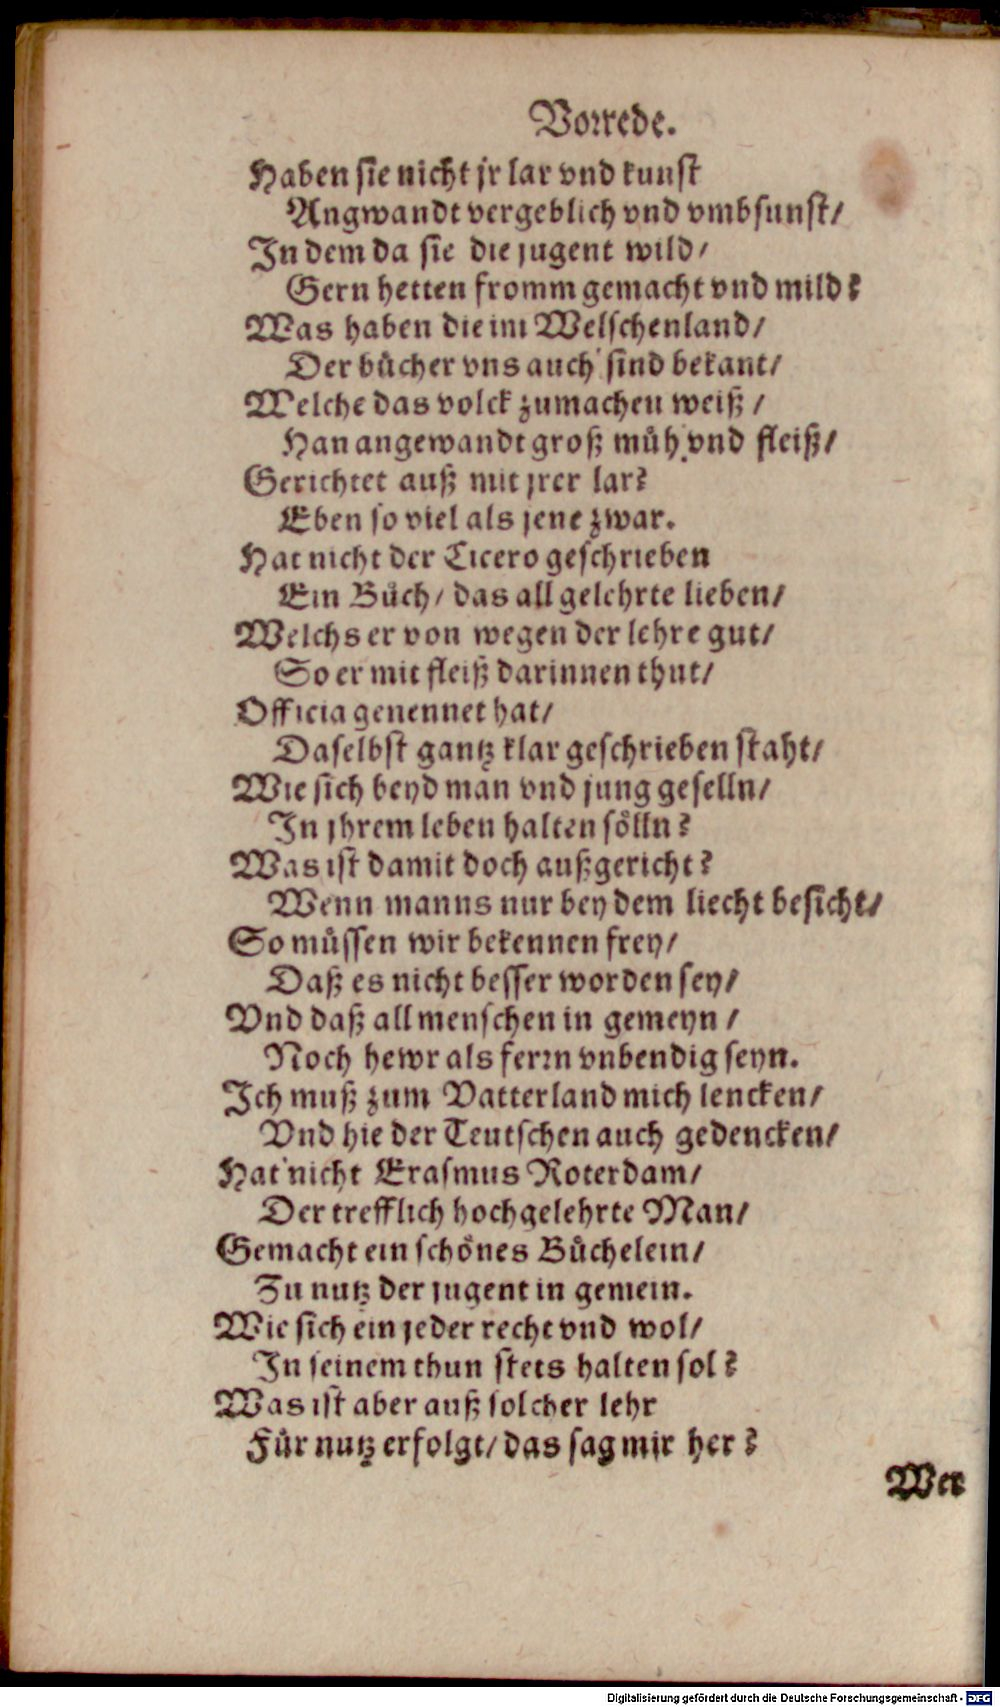 Vorrede.
Haben sie nicht jr lar vnd kunst
Angwandt vergeblich vnd vmbsunst/
In dem da sie die jugent wild/
Gern hetten fromm gemacht vnd mild?
Was haben die im Welschenland/
Der bůcher vns auch sind bekant/
Welche das volck zumachen weiß /
Han angewandt groß můh vnd fleiß/
Gerichtet auß mit jrer lar?
Eben so viel als jene zwar.
Hat nicht der Cicero geschrieben
Ein Bůch/ das all gelehrte lieben/
Welchs er von wegen der lehre gut/
So er mit fleiß darinnen thut/
Officia genennet hat/
Daselbst gantz klar geschrieben staht/
Wie sich beyd man vnd jung geselln/
In jhrem leben halten soͤlln?
Was ist damit doch außgericht?
Wenn manns nur bey dem liecht besicht/
So můssen wir bekennen frey/
Daß es nicht besser worden sey/
Vnd daß all menschen in gemeyn /
Noch hewr als ferrn vnbendig seyn.
Ich muß zum Vatterland mich lencken/
Vnd hie der Teutschen auch gedencken/
Hat nicht Erasmus Roterdam/
Der trefflich hochgelehrte Man/
Gemacht ein schoͤnes Bůchelein/
Zu nutz der jugent in gemein.
Wie sich ein jeder recht vnd wol/
In seinem thun stets halten sol?
Was ist aber auß solcher lehr
Fůr nutz erfolgt/ das sag mir her?
Wer
Digitalisierung gefördert durch die Deutsche Forschungsgemeinschaft - DFG